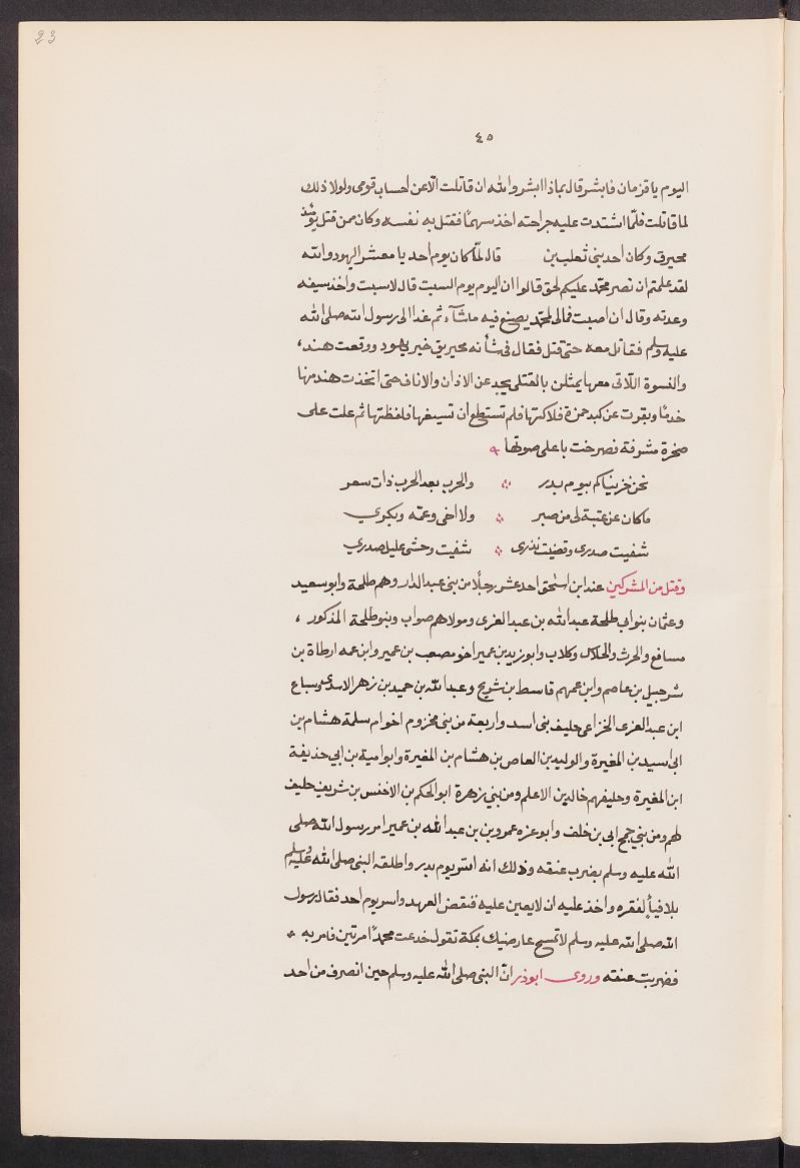 23
٤٥
اليوم يا قزمان فابشر قال بماذا ابشر والله ان قاتلت الا عن احساب قومى ولولا ذلك
لما قاتلت فلما اشتدت عليه جراحته اخذ سهما فقتل به نفسه وكان ممن قتل يومئذ
مخيرق وكان احد بنى ثعلب بن قال لما كان يوم احد يا معشر اليهود والله
لقد علمتم ان نصر محمد عليكم لحق قالوا ان اليوم يوم السبت قال لا سبت واخذ سيفه
وعدته وقال ان اصبت فمالى لمحمد يصنع فيه ماشآء ثم غدا الى رسول الله صلى الله
عليه وسلم فقاتل معه حتى قتل فقال فى شأنه مخيريق خير يهود ووقعت هند،
والنسوة اللآتى معها يمثلن بالقتلى يجدعن الاذان والاناف حتى اتخذت هند منها
خدما وبقرت عن كبد حمزة فلاكتها فلم تستطع ان تسيغها فلفظتها ثم علت على
صخرة مشرفة فصرخت باعلى صوتها
نحن جزيناكم بيوم بدر ❖ والحرب بعد الحرب ذات سعر
ماكان عن عتبة لى من صبر ❖ ولا اخى وعمه وبكرى
شفيت صدرى وقضيت نذرى ❖ شفيت وحشى غليل صدرى
وقتل من المشركين عند ابن اسحق احد عشر رجلا من بنى عبد الدار وهم طلحة وابو سعيد
وعثمان بنو ابى طلحة عبد الله بن عبد العزى ومولاهم صواب وبنو طلحة المذكور ،
مسافع والحرث والجلاس وكلاب وابو زيد بن عمير اخو مصعب بن عمير وابن عمه ارطاة بن
شرحبيل بن عاصم وابن عمهم قاسط بن شريح وعبد الله بن حميد بن زهر الاسدى وسباع
ابن عبد العزى الخزاعى حليف بنى اسد واربعة من بنى مخزوم اخو ام سلمة هشام بن
ابى اسيد بن المغيرة والوليد بن العاص بن هشام بن المغيرة وابو امية بن ابى حذيفة
ابن المغيرة وحليفهم خالد بن الاعلم ومن بنى زهرة ابو الحكم بن الاخنس بن شريف حليف
لهم ومن بني جمح ابى بن خلف وابو عزه عمرو بن عبد الله بن عمير امر رسول الله صلى
الله عليه وسلم بضرب عنقه وذلك انه اسر يوم بدر واطلقه النبى صلى الله عليه وسلم
بلا فدأ لفقره واخذ عليه ان لا يعين عليه فنقض العهد واسر يوم احد فقال رسول
الله صلى الله عليه وسلم لا تمسح عارضيك بمكة تقول خدعت محمدا مرتين فامر به
فضربت عنقه وروى ابوذر ان النبى صلى الله عليه وسلم حين انصرف من احد